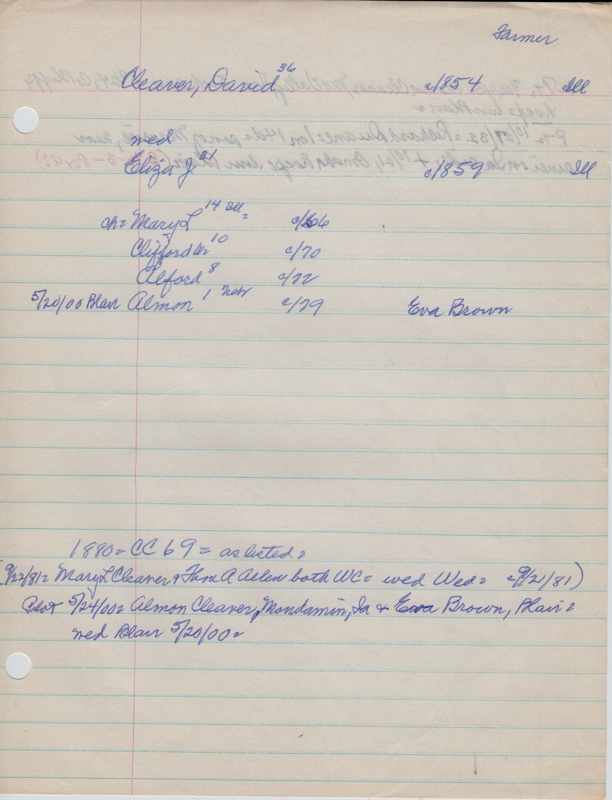 Farmer
Cleaver, David 36 c/1854 Ill
wed
Eliza J 31 c/1859 Ill
ch= Mary L 14 Ill = c/66
Clifford 10 c/70
Alford 8 c/72
5/20/00 Blair Almon 1 Nebr c/79 Eva Brown
1880= CC 69 = as listed=
(9/22/81= Mary L Cleaver & Thos A Allen both WC= wed Wed= 9/21/81)
Pilot 5/24/00= Almon Cleaver, Mondamin, Ia & Eva Brown, Blair=
wed Blair 5/20/00=